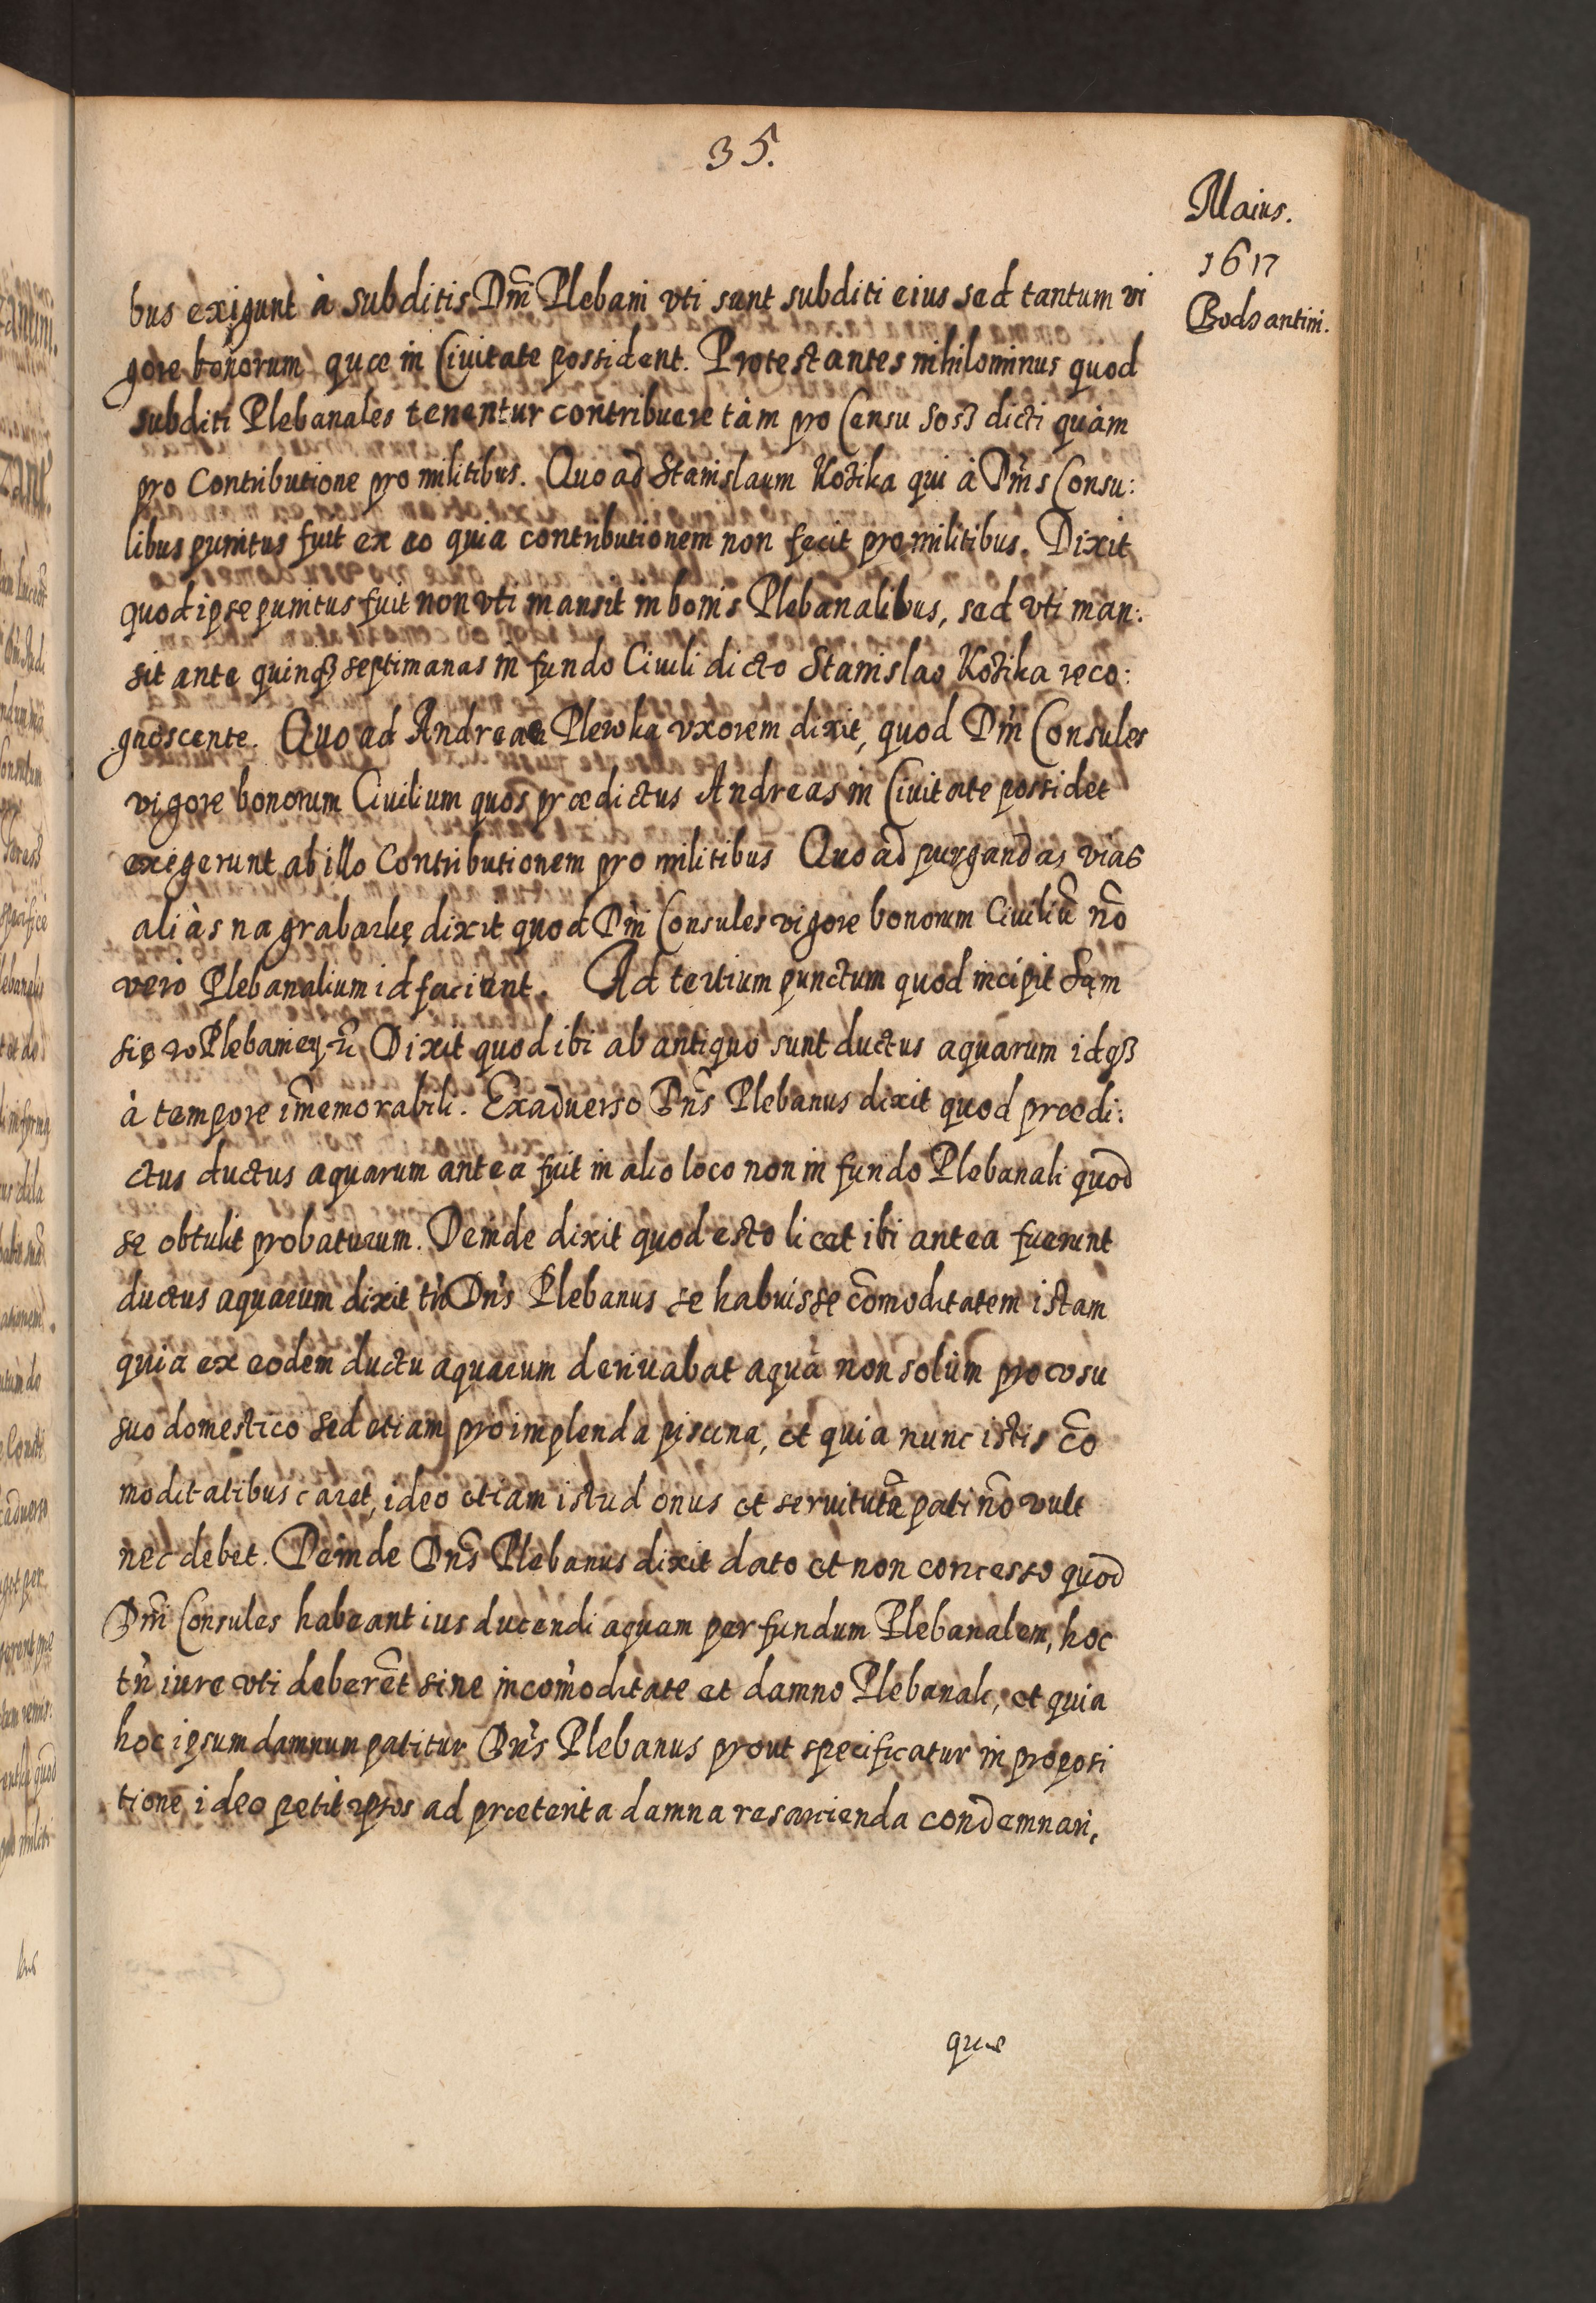 35.
Maius.
1617
Bodzantini.
bus exigunt à subditis Dm̃ Plebani vti sunt subditi eius sed tantum vi
gore bonorum quæ in Ciuitate possident. Protestantes nihilominus quod
subditi Plebanales tenentur contribuere tàm pro Censu Sosz dicti quàm
pro Contributione pro militibus. Quo ad Stanislaum Kozika qui à Dm̃s Consu:
libus punitus fuit ex eo quia contributionem non fecit pro militibus. Dixit
quod ipse punitus fuit non vti mansit in bonis Plebanalibus, sed vti man:
sit ante quinqȝ septimanas in fundo Ciuili dicto Stanislao Kozika reco:
gnoscente. Quo ad Andreae Plewka vxorem dixit, quod Dm̃ Consules
vigore bonorum Ciuilium quos prædictus Andreas in Ciuitate possidet
exigerunt ab illo Contributionem pro militibus Quo ad purgandas vias
aliàs na grabarkę dixit quod Dm̃i Consules vigore bonorum Ciuiliũ nõ
vero Plebanalium id faciunt. Ad tertium punctum quod incipit Sam
się w Plebaniey &c̃ Dixit quod ibi ab antiquo sunt ductus aquarum idqȝ
à tempore im̃emorabili. Exaduerso Dñs Plebanus dixit quod prædi:
ctus ductus aquarum antea fuit in alio loco non in fundo Plebanali quod
se obtulit probaturum. Deinde dixit quod esto licet ibi antea fuerunt
ductus aquarum dixit tñ Dñs Plebanus se habuisse cõmoditatem istam
quia ex eodem ductu aquarum deriuabat aquã non solùm pro vsu
suo domestico sed etiam pro implenda piscina, et quia nunc istis cõ
moditatibus caret, ideo etiam istud onus et seruitutẽ pati nõ vult
nec debet. Deinde Dñs Plebanus dixit dato et non concesso quod
Dm̃i Consules habeant ius ducendi aquam per fundum Plebanalem, hoc
tñ iure vti deberẽt sine incom̃oditate et damno Plebanali, et quia
hoc ipsum damnum patitur Dñs Plebanus prout specificatur in proposi
tione ideo petit ipsos ad præterita damna resarcienda condemnari,
quæ